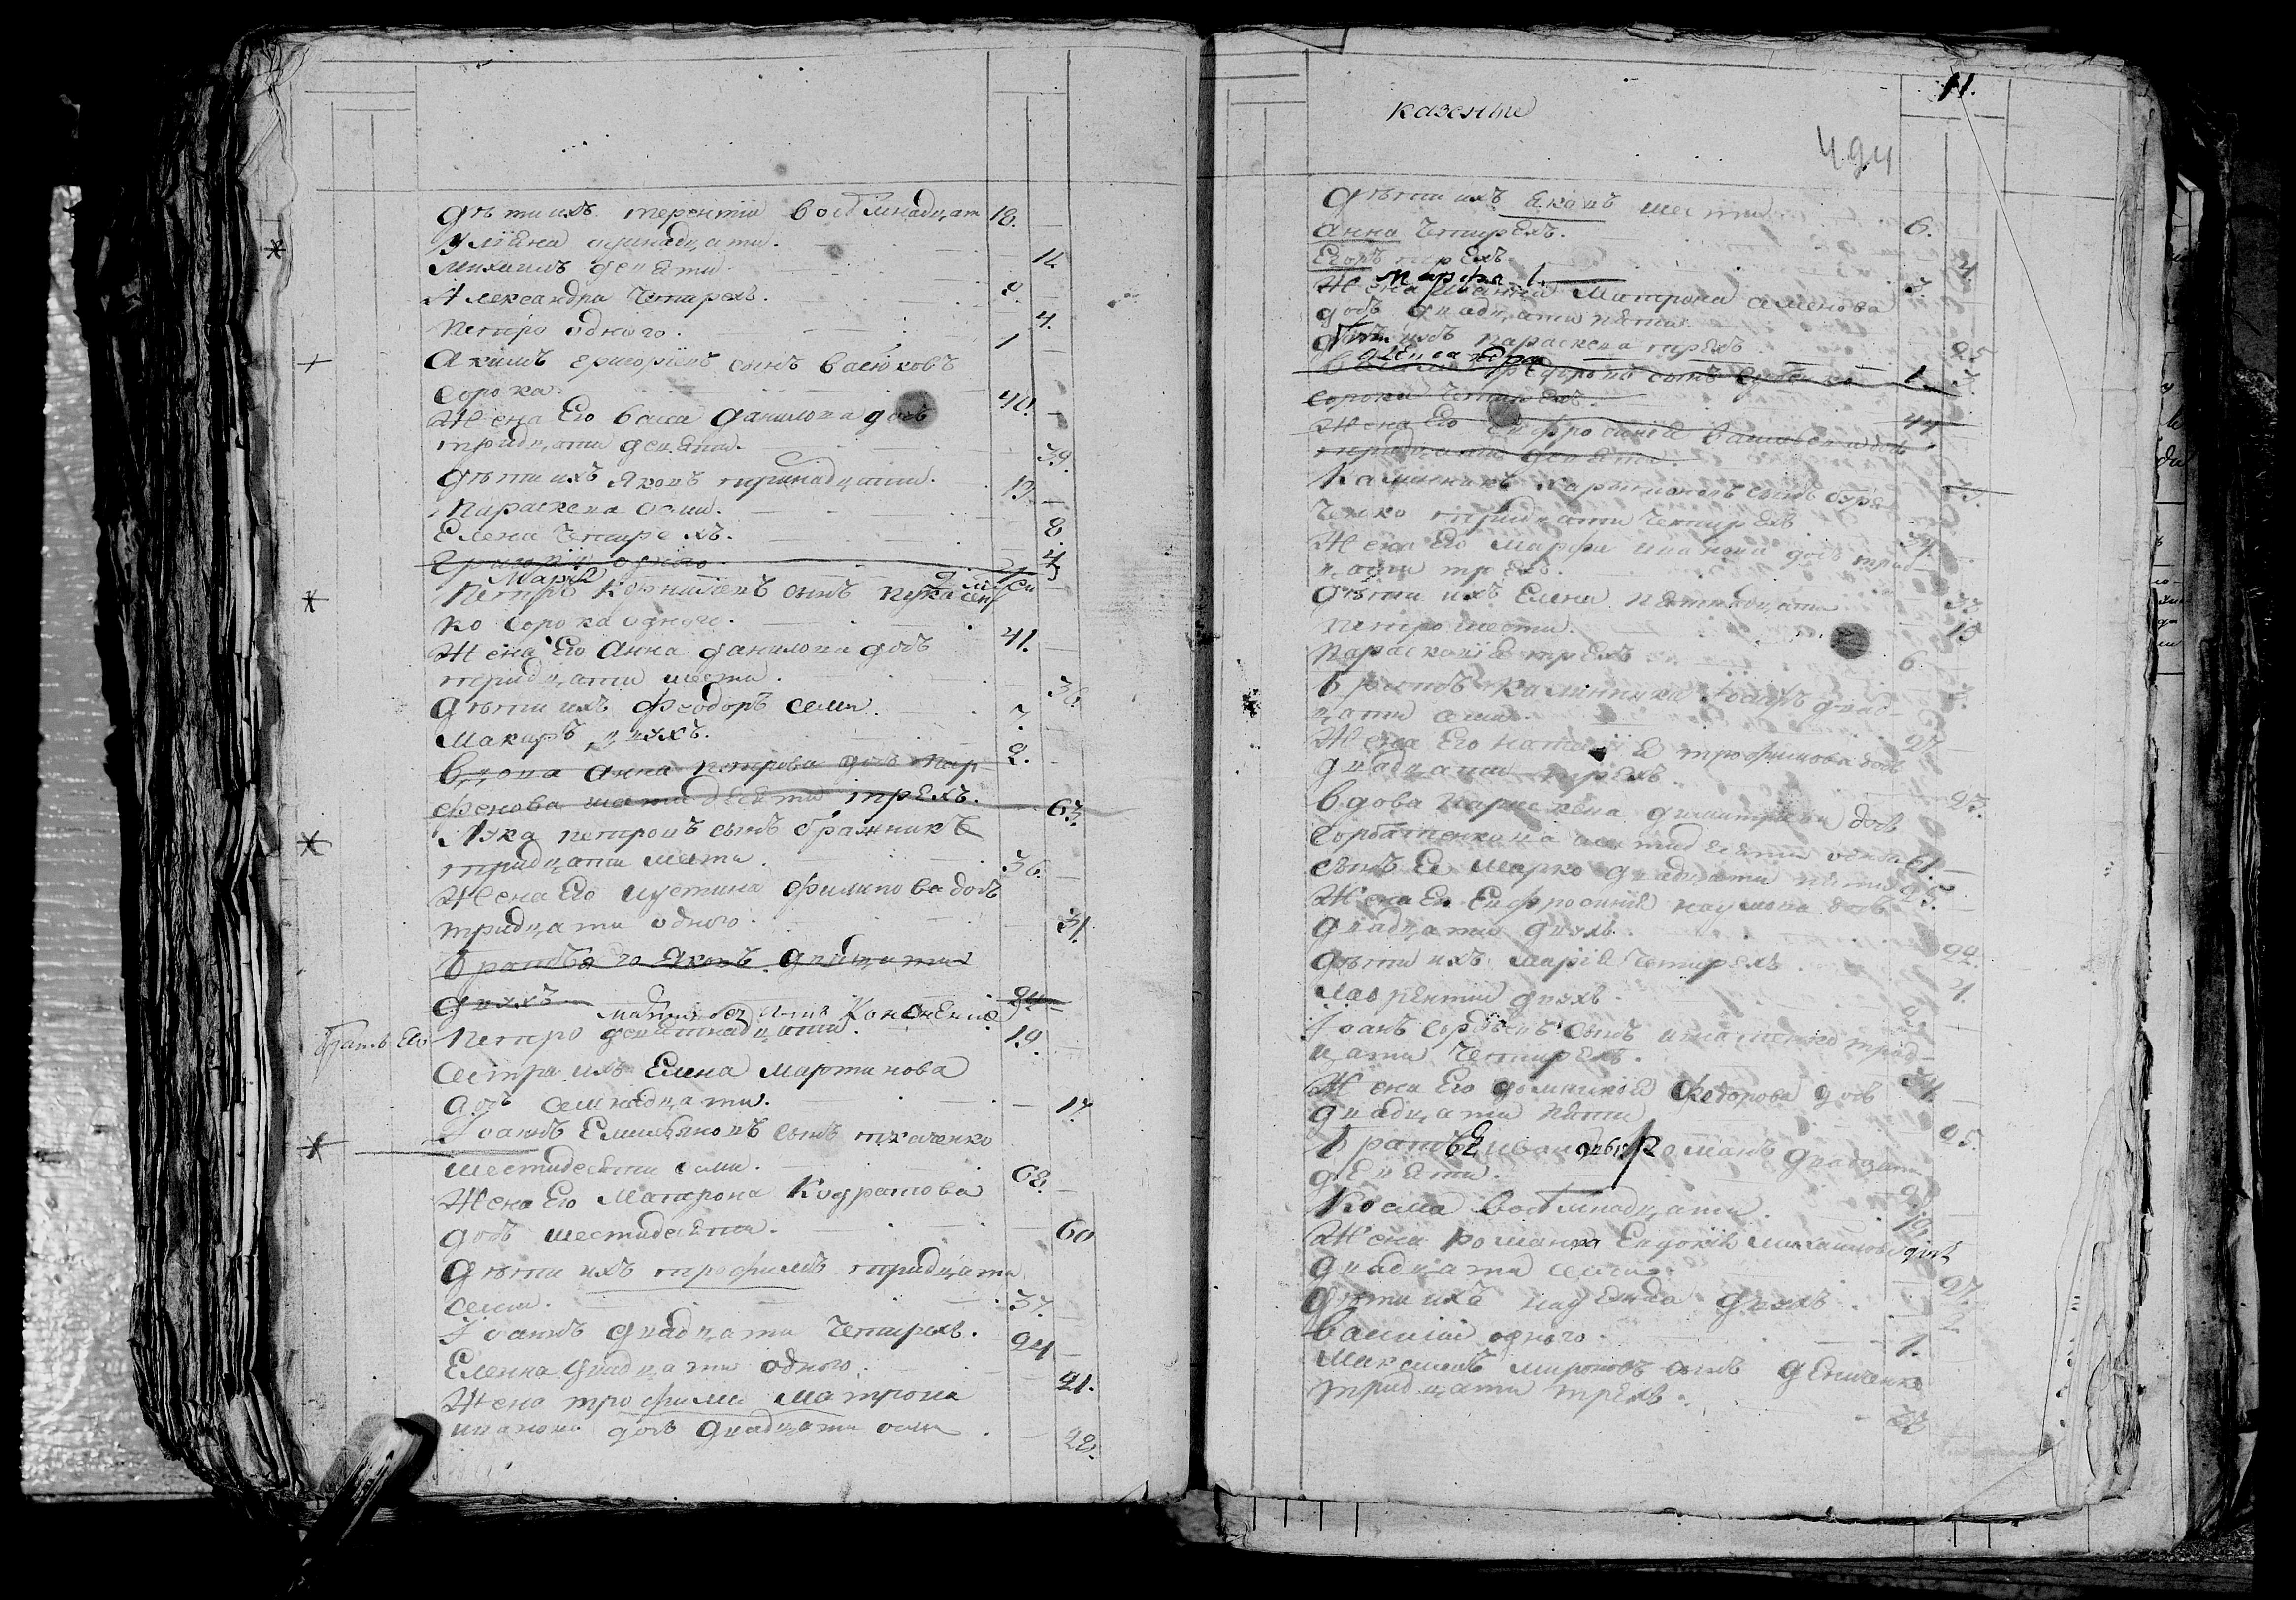 дѣти ихъ терентій восѣмнадцати 18.
Уліяна одинадцати. 11.
михаилъ девяти 9.
Александра Четырехъ. 4.
петро одного. 1
акимъ григоріевъ сынъ васюковъ
сорока. 40.
Жена Его васса данилова дочь
тридцати девяти. 39.
дѣти ихъ яковъ тринадцати. 13
параскева осми. 8
Елена Четырехъ. 4
григорій одного
Марія
петръ корниліевъ сынъ
ко сорока одного. 41.
Жена Его Анна данилова дочь
тридцати шести. 36.
дѣти ихъ феодоръ семи. 7.
макаръ двухъ. 2.
вдова анна петрова дочь пар
фенова шестидесяти трехъ. 63.
Лука петровъ сынъ бражникъ
тридцати шести. 36.
Жена Его иустина филипова дочь
тридцати одного. 31.
братъ Его Яковъ двадцати
двухъ
братъ Его петро девятнадцати. 19.
сестра ихъ Елена мартинова
дочь семнадцати. 17.
Іоаннъ Емильяновъ сынъ ткаченко
шестидесяти осми. 68.
Жена Его Матрона Кодратова
дочь шестидесяти. 60
дѣти ихъ трофимъ тридцати
семи. 37.
Іоаннъ двадцати Четырехъ. 24
Еленна двадцати одного. 21.
Жена трофима матрона
иванова дочь двадцати осми 28.
11.
казенные
494
дѣти ихъ яковъ шести 6.
анна Четырехъ. 4.
Егоръ трехъ 3.
Марфа 1.
Жена Матрона семенова
дочь двадцати пяти. 25
дѣти ихъ параскева трехъ 3.
александра 1.
сорока Четырехъ. 44
Жена Его Ефросинія васильева дочь
тридцати девяти. 39.
Калинникъ харитоновъ сынъ
ченко тридцати четырехъ 34.
Жена Его марфа иванова дочь трид
цати трехъ. 33
дѣти ихъ Елена пятнадцати 15
петро шести. 6.
параскевія трехъ 3.
братъ калинника Іоаннъ двад
цати семи. 27.
Жена Его наталія трофимова дочь
двадцати трехъ. 23.
вдова параскева димитріева дочь
горбатенкова
сынъ Ея марко двадцати пяти 25.
Жена Его Ефросинія наумова дочь
двадцати двухъ. 22.
дѣти ихъ марія Четырехъ 4.
лаврентій двухъ. 2.
Іоаннъ сынъ игнатенко трид
цати Четырехъ. 34.
Жена Его домникія федорова дочь
двадцати пяти 25.
братъ Романъ двадцати
девяти. 29
Косма восѣмнадцати. 18.
Жена романа Евдокія михайлова дочь
двадцати семи. 27.
дѣти ихъ надежда двухъ. 2.
василій одного. 1.
Максимъ мироновъ сынъ денченко
тридцати трехъ. 33